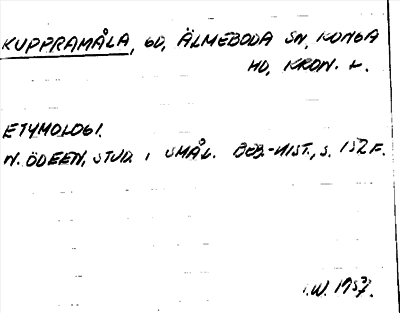 KUPPRAMÅLA, GD, ÄLMEBODA SN, KONGA
HD, KRON. L.
ETYMOLOGI.
N. ÖDEEN, STUD. I SMÅL. BEB.-HIST., S. 152 F.
I.W. 1957.